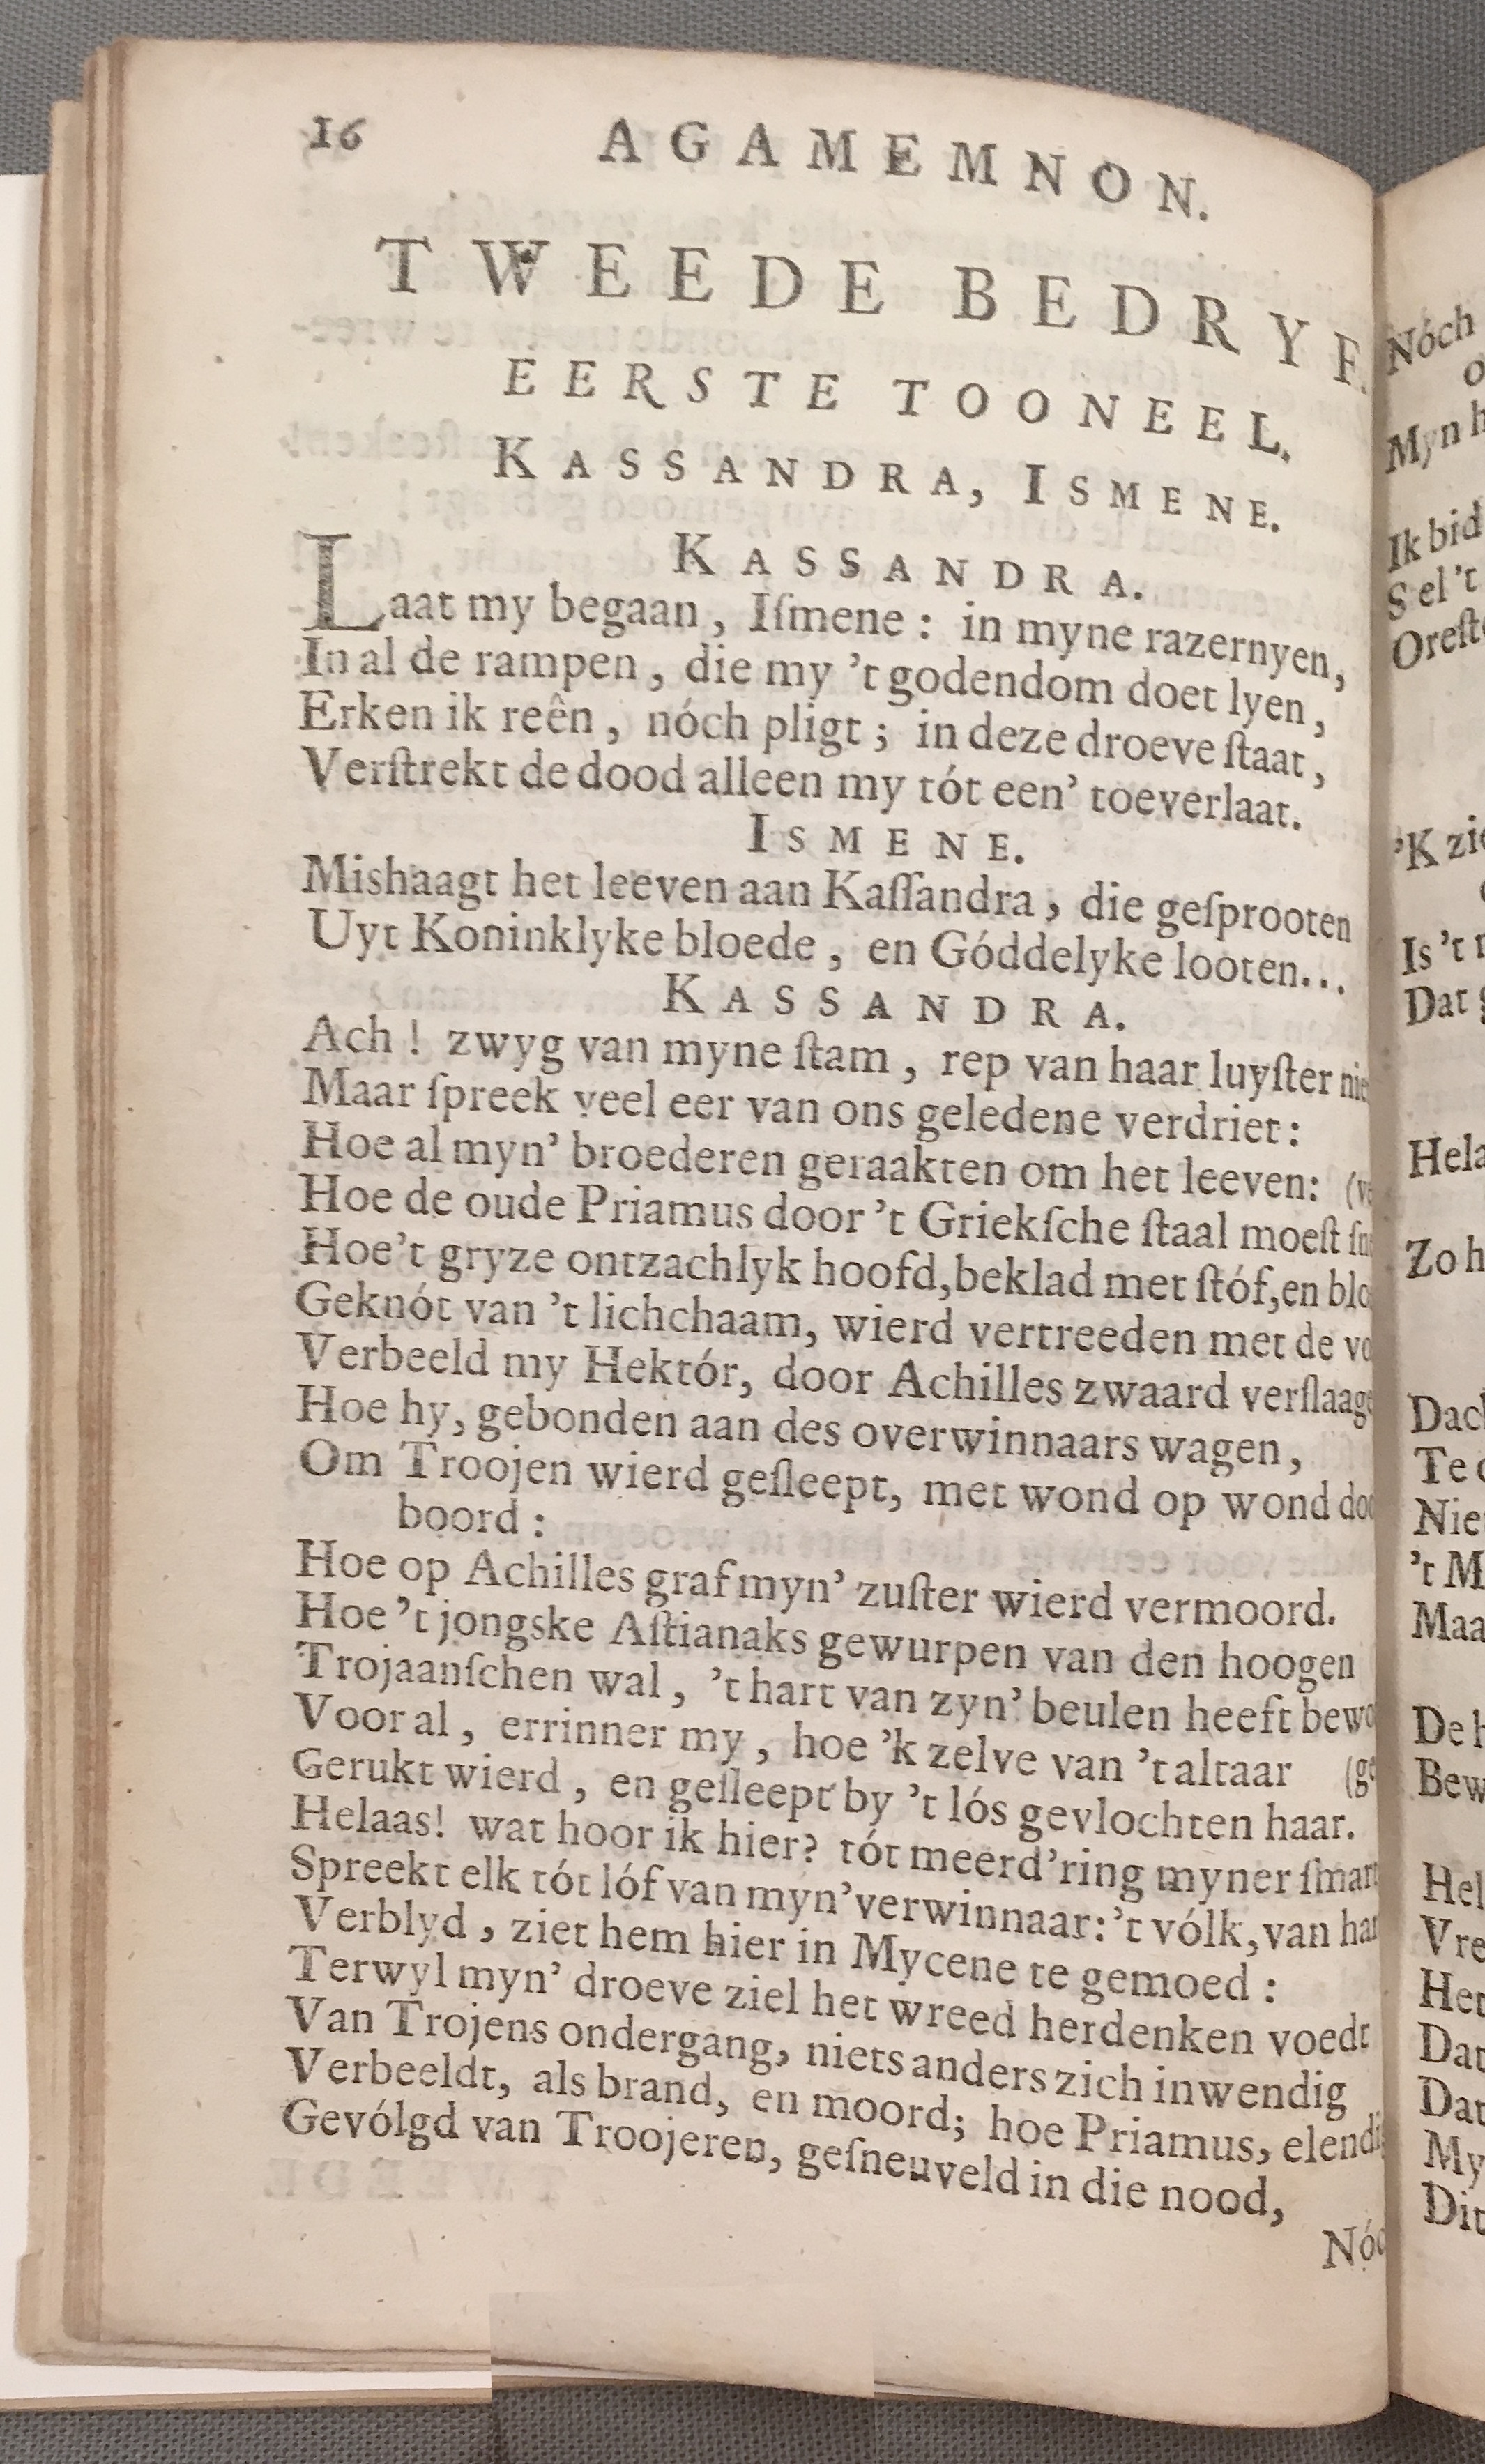 16 AGAMEMNON.
TWEEDE BEDRYF.
EERSTE TOONEEL.
KASSANDRA, ISMENE.
KASSANDRA.
Laat my begaan, Iſmene: in myne razernyen,
In al de rampen, die my 't godendom doet lyen,
Erken ik reên, nóch pligt; in deze droeve ſtaat,
Verſtrekt de dood alleen my tót een' toeverlaat.
ISMENE.
Mishaagt het leeven aan Kaſſandra, die geſprooten
Uyt Koninklyke bloede, en Góddelyke looten...
KASSANDRA.
Ach! zwyg van myne ſtam, rep van haar luyſter
Maar ſpreek veel eer van ons geledene verdriet:
Hoe al myn' broederen geraakten om het leeven:
Hoe de oude Priamus door 't Griekſche ſtaal moeſt
Hoe 't gryze ontzachlyk hoofd, beklad met ſtóf, en
Geknót van 't lichchaam, wierd vertreeden met de
Verbeeld my Hektór, door Achilles zwaard
Hoe hy, gebonden aan des overwinnaars wagen,
Om Troojen wierd geſleept, met wond op wond
boord:
Hoe op Achilles graf myn' zuſter wierd vermoord.
Hoe 't jongske Aſtianaks gewurpen van den hoogen
Trojaanſchen wal, 't hart van zyn' beulen heeft
Voor al, errinner my, hoe 'k zelve van 't altaar
Gerukt wierd, en geſleept by 't lós gevlochten haar.
Helaas! wat hoor ik hier? tót meerd'ring myner
Spreekt elk tót lóf van myn' verwinnaar: 't vólk, van
Verblyd, ziet hem hier in Mycene te gemoed:
Terwyl myn' droeve ziel het wreed herdenken voedt
Van Trojens ondergang, niets anders zich inwendig
Verbeeldt, als brand, en moord; hoe Priamus,
Gevólgd van Troojeren, geſneuveld in die nood,
Nóch
Myn
Ik bid
Sel 't
'K
Is 't
Dat
Zo
Te
't
De